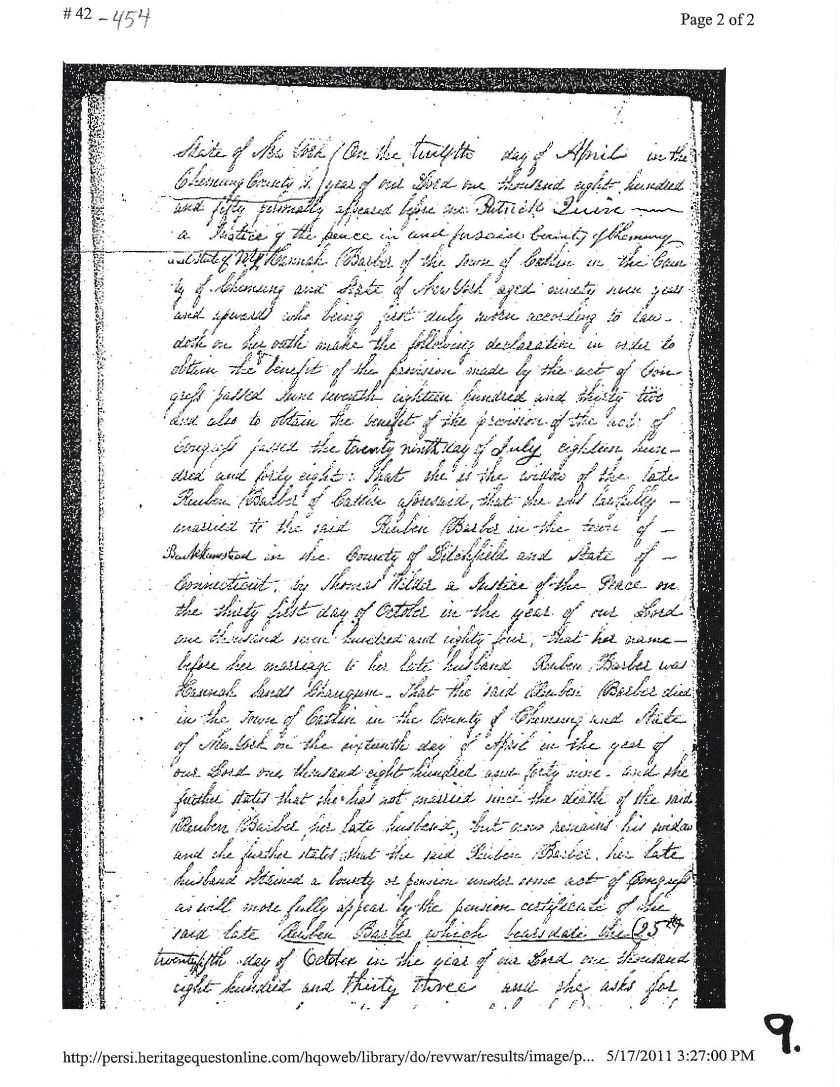 # 42 - 454
Page 2 of 2
State of New York } On the twelfth day of April in the
Chemung County ss } year of our Lord one thousand eight hundred
and fifty personally appeared before me Patrick Quinn
a Justice of the peace in and foresaid County of Chemung
and State of N.Y. Hannah Barber of the town of Catlin in the Coun
ty of Chemung and State of New York aged ninety nine years
and upwards who being first duly sworn according to law -
doth on her oath make the following declaration in order to
obtain the benefit of the provision made by the act of Con
gress passed June seventh eighteen hundred and thirty two
and also to obtain the benefit of the provision of the act of
Congress passed the twenty ninth day of July eighteen hun -
dred and forty eight: That she is the widow of the late
Reuben Barber of Catlin aforesaid, that she was lawfully -
married to the said Reuben Barber in the town of -
Barkhamstead in the County of Litchfield and State of -
Connecticut, by Thomas Wilder a Justice of the Peace on
the thirty first day of October in the year of our Lord
one thousand seven hundred and eighty four, that her name -
before her marriage to her late husband Reuben Barber was
Hannah Sands - That the said Reuben Barber died
in the Town of Catlin in the County of Chemung and State
of New York on the sixteenth day of April in the year of
our Lord one thousand eight hundred and forty nine - and she
further states that she has not married since the death of the said
Reuben Barber her late husband, but now remains his widow
and she further states that the said Reuben Barber, her late
husband obtained a bounty or pension under some act of Congress
as will more fully appear by the pension certificate of the
said late Reuben Barber which bears date the 25th
twenty fifth day of October in the year of our Lord one thousand
eight hundred and thirty three and she asks for
9.
http://persi.heritagequestonline.com/hqoweb/library/do/revwar/results/image/p... 5/17/2011 3:27:00 PM